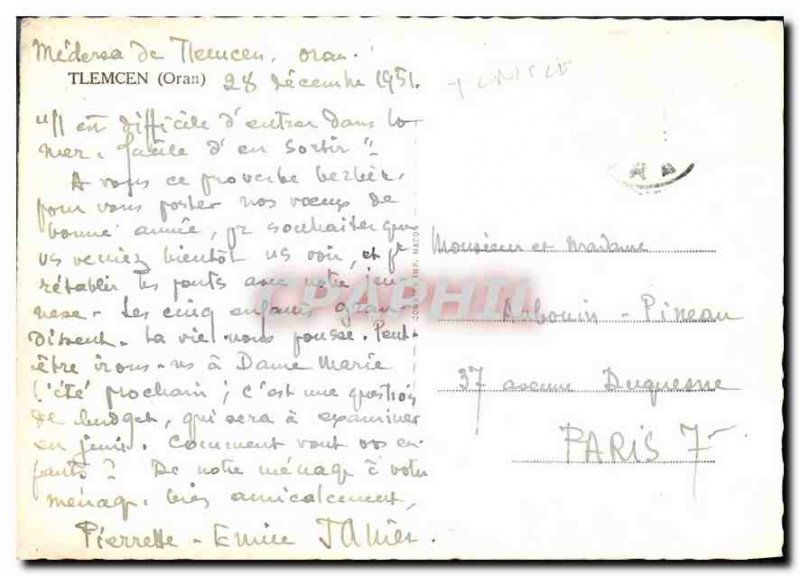 Médersa de Tlemcen, Oran.
TLEMCEN (Oran) 28 décembre 1951.
"Il est difficile d'entrer dans la
mer, facile d'en sortir".
A vous ce proverbe
pour vous porter nos vœux de
bonne année, je souhaiter que
vs veniez bientôt ns voir, et je
rétablir les ponts avec notre jeu-
nesse. Les cinq enfants gran-
dissent. La vie nous pousse. Peut-
être irons-ns à Dame Marie
l'été prochain ; c'est une question
de budget, qui sera à examiner
en juin. Comment vont vos en-
fants ? De notre ménage à votre
ménage, bien amicalement,
Pierrette - Emile
TUNISIE
Monsieur et Madame
- Pineau
37 avenue Duquesne
PARIS 7
CPAPHIL